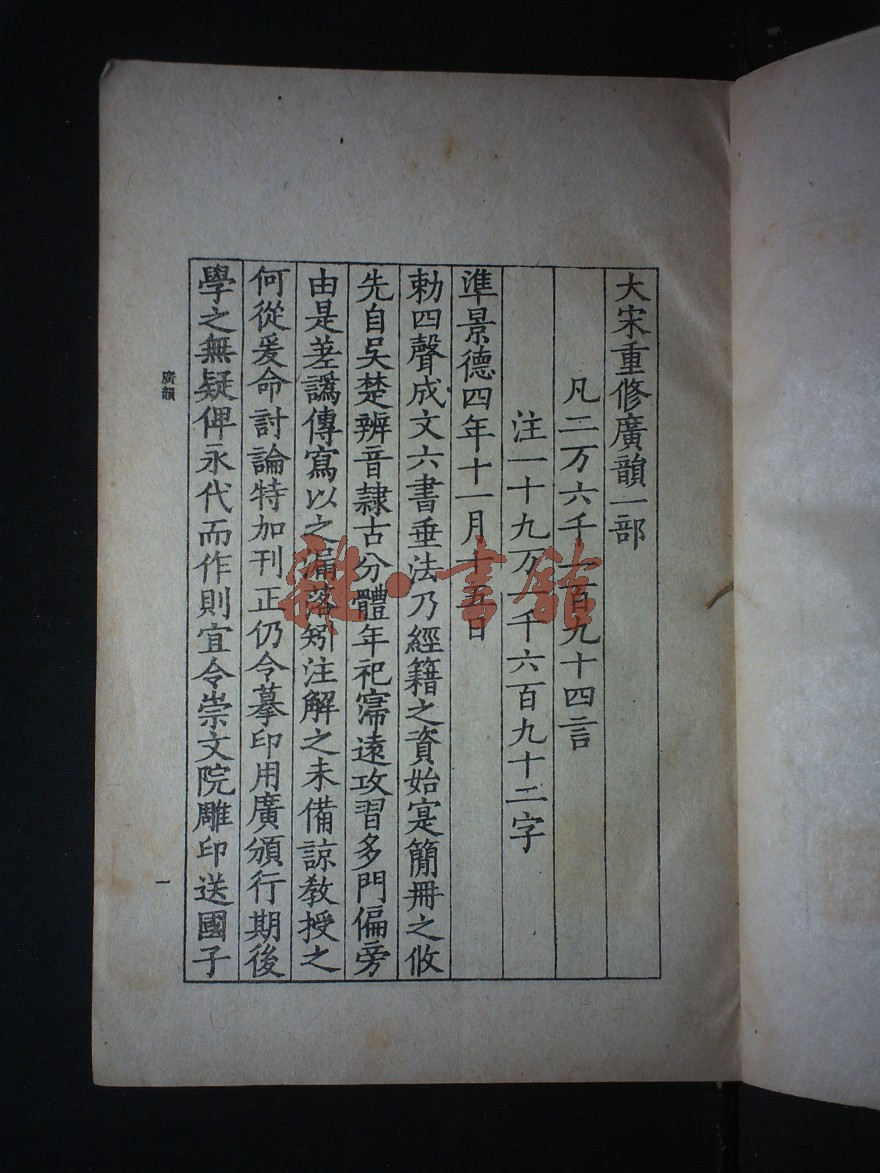 大宋重修廣韻一部
凡二万六千一百九十四言
注一十九万一千六百九十二字
準景德四年十一月十五日
勑四聲成文六書垂法乃經籍之資始寔簡冊之攸
先自吳楚辨音隷古分體年祀寖遠攻習多門偏旁
由是差譌傳寫以之漏落矧注解之未備諒教授之
何從爰命討論特加刊正仍令摹印用廣頒行期後
學之無疑俾永代而作則宜令崇文院雕印送國子
廣韻
一
雜·書館